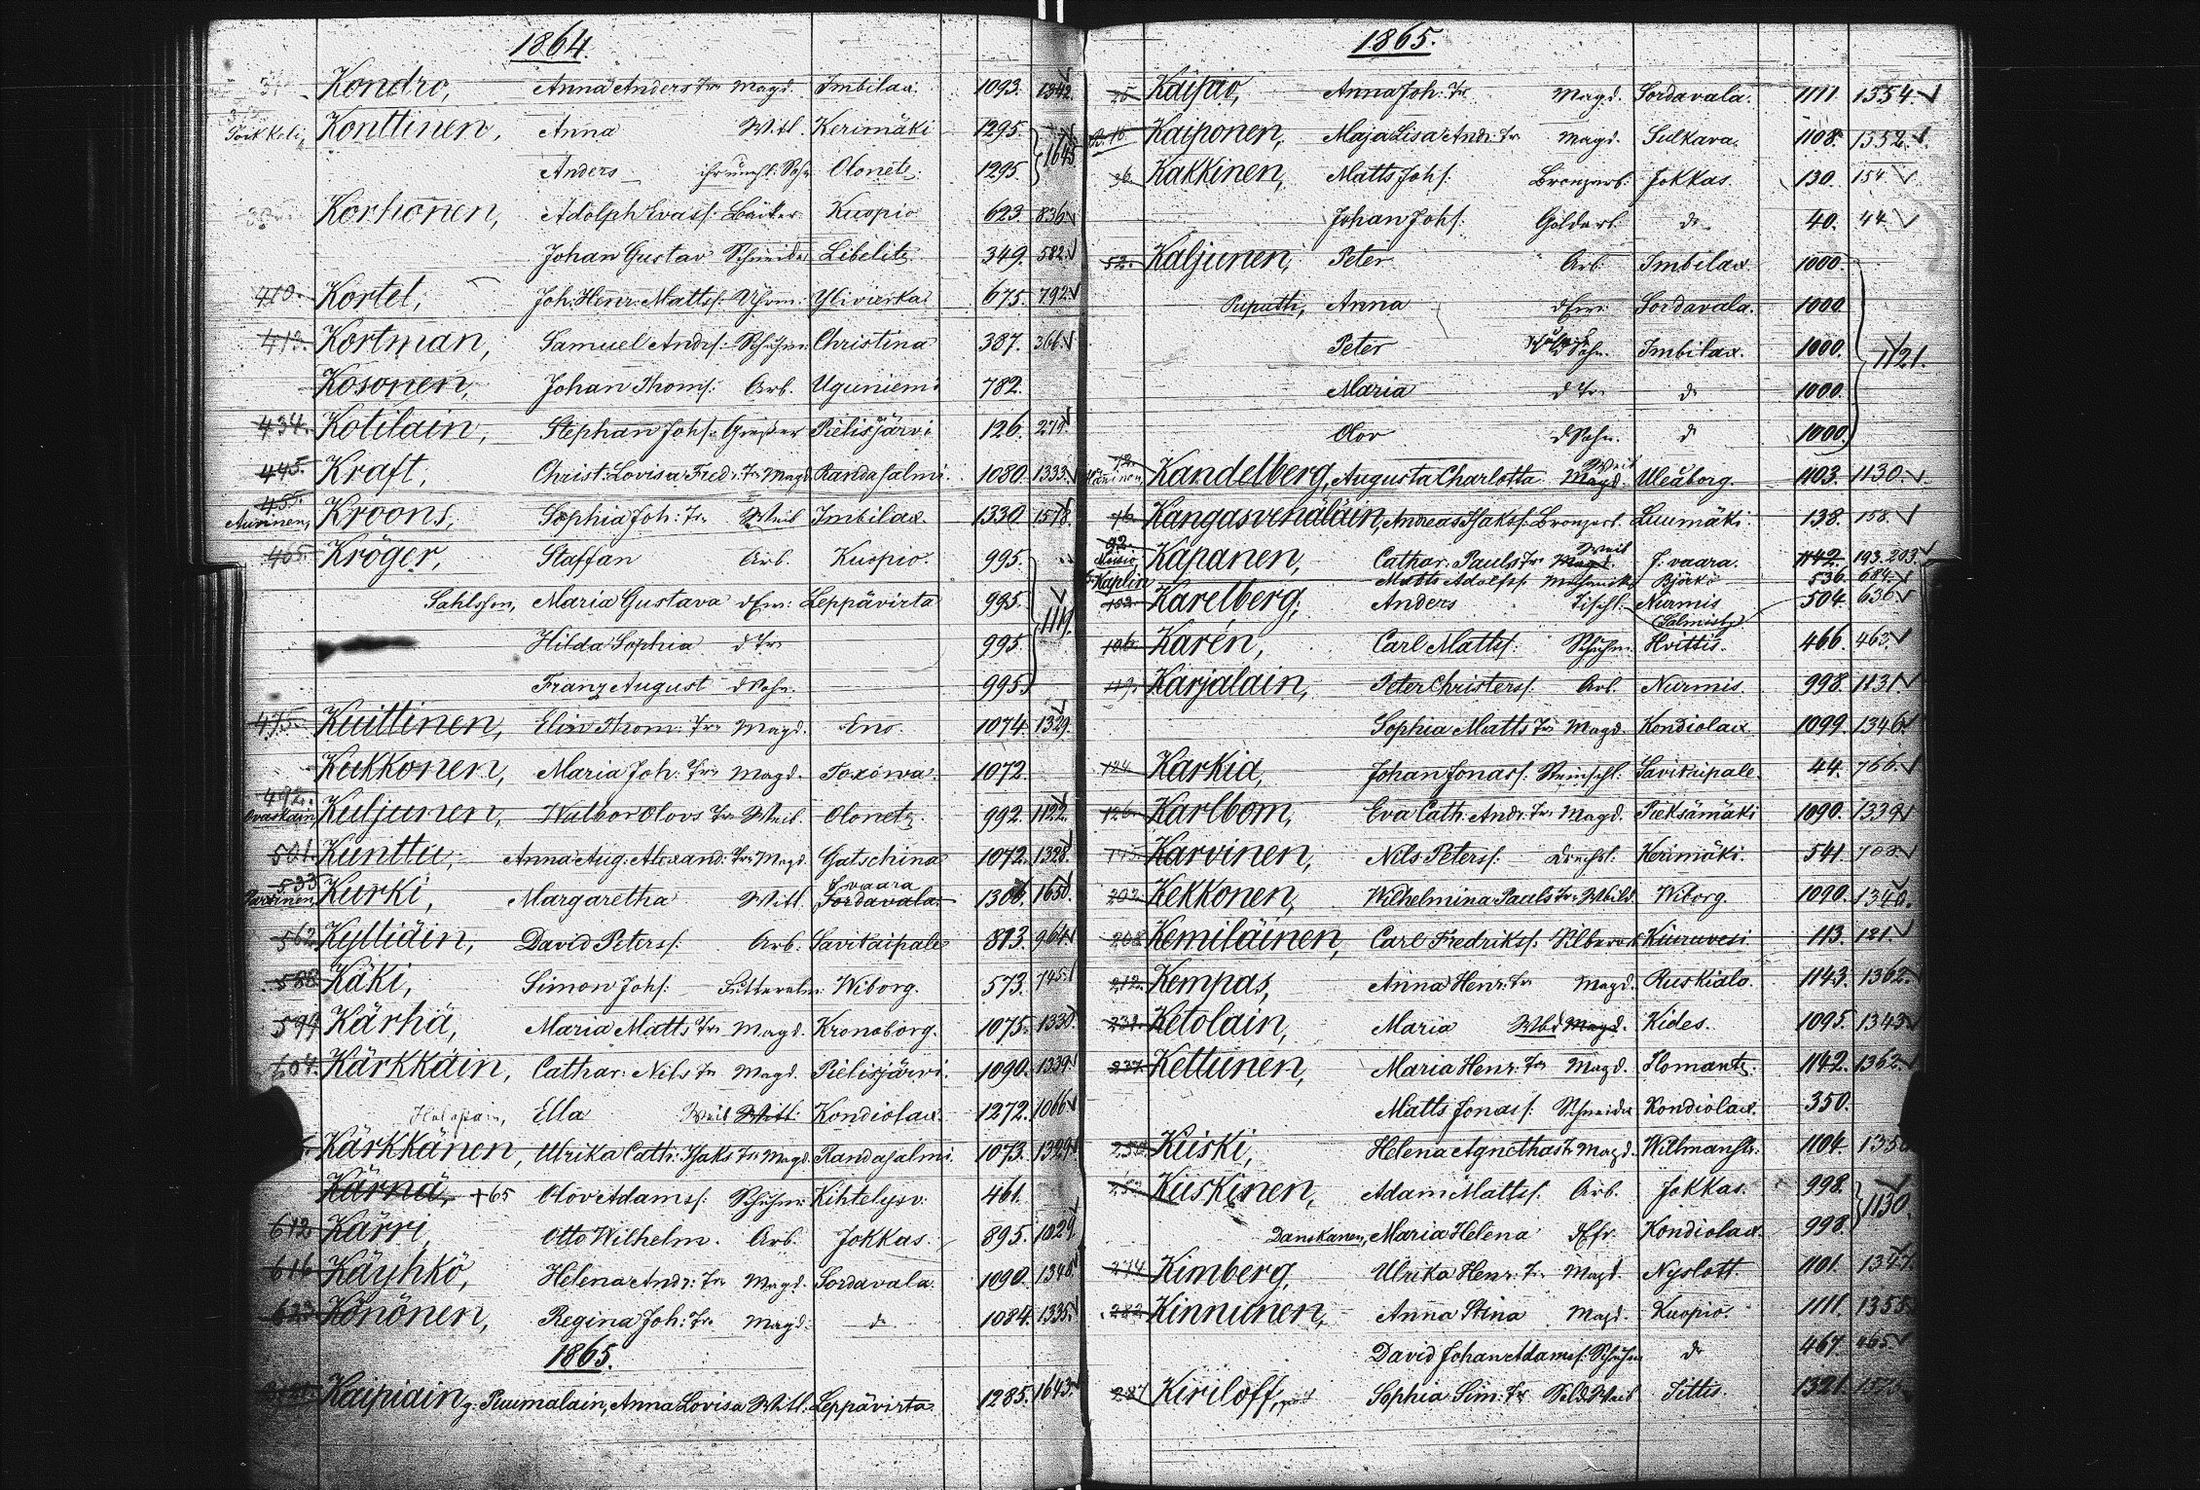 1864.
Kondro, Anna Anders Tr. Magd. Imbilax. 1093. 1342.
Konttinen, Anna Witt. Kerimäki 1295.
Anders Olonetz. 1295. 1645
Korhonen, Adolph Evass. Bäcker Kuopio 623. 836.
Johan Gustav Schneider Libelitz. 349. 582.
410. Kortel, Joh. Henr. Matts. Uhrm. Ylivieska 675. 792.
413. Kortman, Samuel Andrs. Schuhm. Christina 387. 366.
Kosonen, Johan Thoms. Arb. Uguniemi 782.
434. Kotilain, Stephan Johs. Gießer Pielisjärvi 126. 219.
445. Kraft, Christ. Lovisa Fredr. Tr. Magd. Randasalmi. 1080. 1333.
455. Kroons, Sophia Joh. Tr. Weib Imbilax. 1330. 1578.
465. Kröger, Staffan Arb. Kuopio. 995.
Sahlsten, Maria Gustava d Fr. Leppävirta 995. 1119.
Hilda Sophia d Tr. 995.
Franz August d Sohn. 995.
475. Kuittinen, Elin Thom. Tr. Magd. Eno. 1074. 1329.
Kukkonen, Maria Joh. Tr. Magd. Toxowa. 1072.
492. Ovaskain Kuljunen, Walbor Olovs Tr. Weib. Olonetz. 992. 1122.
501. Kunttu, Anna Aug. Alexand. Tr. Magd. Gatschina 1072. 1328.
533. Kurki, Margaretha Witt. J. vaara Sordavala. 1306. 1650.
562. Kylliäin, David Peterss. Arb. Savitaipale 813. 964.
588. Käki, Simon Johs. Futteralm. Wiborg. 573. 745.
594 Kärhä, Maria Matts Tr. Magd. Kronoborg. 1075. 1330.
604. Kärkkäin, Cathar. Nils Tr. Magd. Pielisjärvi. 1090. 1339.
Ella Weib Witt. Kondiolax. 1272. 1066
Kärkkänen, Ulrika Cath. Isaks Tr. Magd. Randasalmi. 1073. 1329.
Kärnä, +65 Olov Adamss. Schuhm. Kihtelysv. 461.
612 Kärri, Otto Wilhelm. Arb. Jokkas. 895. 1029.
616 Käyhkö, Helena Andr. Tr. Magd. Sordavala. 1090. 1340.
623 Könönen, Regina Joh. Tr. Magd. d 1084. 1335.
1865.
Kaipiain, g. Ruumalain, Anna Lovisa Witt. Leppävirta. 1285. 1643.
1865.
Kaipio, Anna Joh. Tr. Magd. Sordavala. 1111. 1354.
Kaiponen, Maja Lisa Andr. Tr. Magd. Sulkava. 1108. 1352.
36. Kakkinen, Matts Johs. Bronzarb. Jokkas. 130. 154
Johan Johs. Goldarb. d 40. 44.
52. Kaljunen, Peter Arb. Imbilax 1000.
Puputti, Anna d Fr. Sordavala. 1000.
Peter d Sohn. Imbilax. 1000. 1121.
Maria d Tr. d 1000.
Olov d Sohn. d 1000
72. Kandelberg, Augusta Charlotta Weib Magd. Uleåborg. 1103. 1130.
76. Kangasvenäläin, Andreas Isaks. Bronzarb. Luumäki. 138. 158.
92. Kapanen, Cathar. Pauls Tr. Weib Magd. J. vaara. 1142. 193. 203
Kaplin Matts Adolfss. Mechanik. Björkö 536. 684.
102. Karelberg, Anders Tischl. Nurmis (Salmis) 504. 636
106. Karén, Carl Matts. Schuhm. Hvittis. 466. 463.
119. Karjalain, Peter Christerss. Arb. Nurmis. 998. 1131
Sophia Matts Tr. Magd. Kondiolax. 1099. 1346.
124. Karkia, Johan Jonass. Steinschl. Savitaipale. 44. 766.
126. Karlbom, Eva Cath. Andr. Tr. Magd. Pieksämäki 1090. 1339
Karvinen, Nils Peterss. Drechsl. Kerimäki. 541. 708.
202. Kekkonen, Wilhelmina Pauls Tr. Wbild. Wiborg. 1090. 1340.
208. Kemiläinen, Carl Fredrikss. Silberarb Kiuruvesi 113. 121.
212. Kempas, Anna Henr. Tr. Magd. Ruskiala. 1143. 1362.
231. Ketolain, Maria Wbd Magd. Kides. 1095. 1343
237. Kettunen, Maria Henr. Tr. Magd. Ilomants. 1142. 1362.
Matts Jonass. Schneider Kondiolax. 350.
250. Kiiski, Helena Agnetha Tr. Magd. Willmanstr. 1104. 135
252. Kiiskinen, Adam Matts. Arb. Jokkas. 998.
Danskanen, Maria Helena d Fr. Kondiolax. 998. 1130.
274 Kimberg, Ulrika Henr. Tr. Magd. Nyslott. 1101. 1347.
282. Kinnunen, Anna Stina Magd. Kuopio. 1111. 1355.
David Johan Adamss. Schuhm d 467. 465.
287 Kiriloff, Sophia Sim. Tr. Sold. Weib Tittis. 1321. 1575